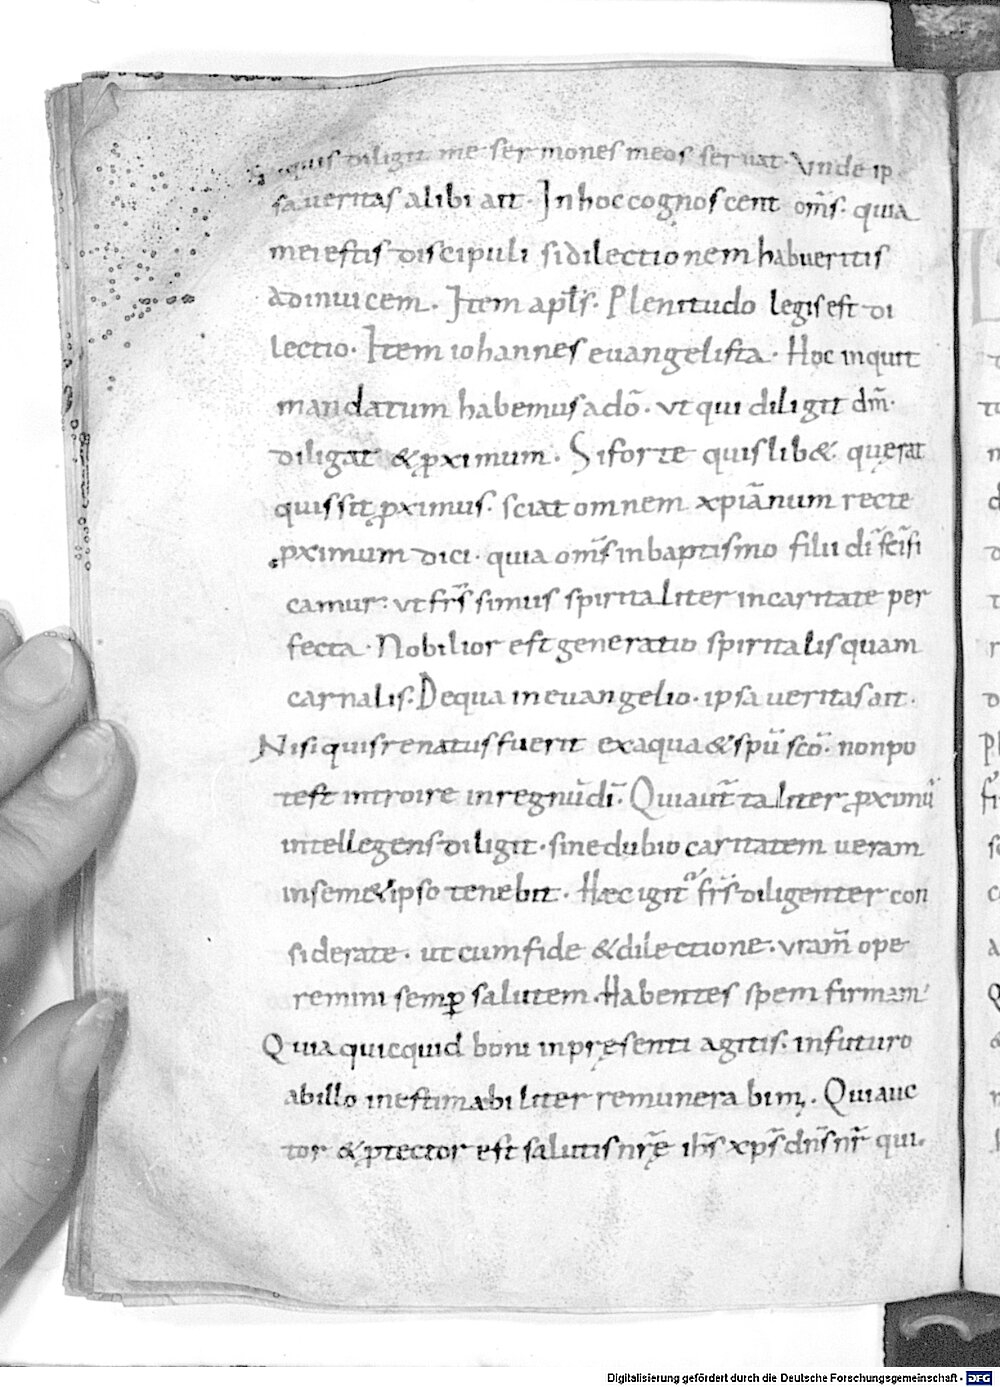 Siquis diligit me sermones meos seruat. Vnde ip
sa ueritas alibi ait. In hoc cognoscent om̄s. quia
mei estis discipuli si dilectionem habueritis
adinuicem. Item apl̄s. Plenitudo legis est di
lectio. Item iohannes euangelista. Hoc inquit
mandatum habemus a dō. ut qui diligit dm̄.
diligat & ꝓximum. Si forte quislib& quęrat
quis sit ꝓximus. sciat omnem xp̄ianum recte
ꝓximum dici. quia om̄s in baptismo filii dī sc̄ifi
camur. ut fr̄s simus spiritaliter in caritate per
fecta. Nobilior est generatio spiritalis quam
carnalis. De qua in euangelio. ipsa ueritas ait.
Nisi quis renatus fuerit ex aqua & spū scō. non po
test introire in regnū dī. Quia aut̄ taliter ꝓximū
intellegens diligit. sine dubio caritatem ueram
in semet ipso tenebit. Haec igit᷑ fr̄s diligenter con
siderate. ut cum fide & dilectione. uram̄ ope
remini semꝑ salutem. Habentes spem firmam
Quia quicquid boni in pręsenti agitis. in futuro
ab illo inestimabiliter remunerabimꝫ. Quia auc
tor & ꝓtector est salutis nrę̄ ih̄s xp̄s dn̄s nr̄ qui.
Digitalisierung gefördert durch die Deutsche Forschungsgemeinschaft - DFG